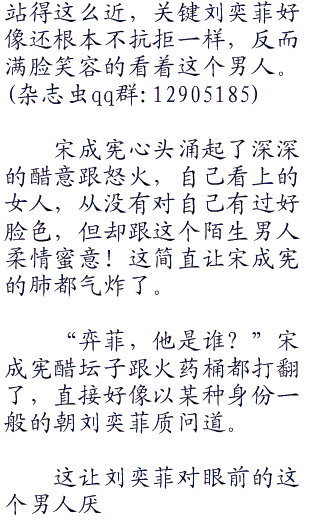 站得这么近，关键刘奕菲好
像还根本不抗拒一样，反而
满脸笑容的看着这个男人。
(杂志虫qq群:12905185)
宋成宪心头涌起了深深
的醋意跟怒火，自己看上的
女人，从没有对自己有过好
脸色，但却跟这个陌生男人
柔情蜜意！这简直让宋成宪
的肺都气炸了。
“弈菲，他是谁？”宋
成宪醋坛子跟火药桶都打翻
了，直接好像以某种身份一
般的朝刘奕菲质问道。
这让刘奕菲对眼前的这
个男人厌